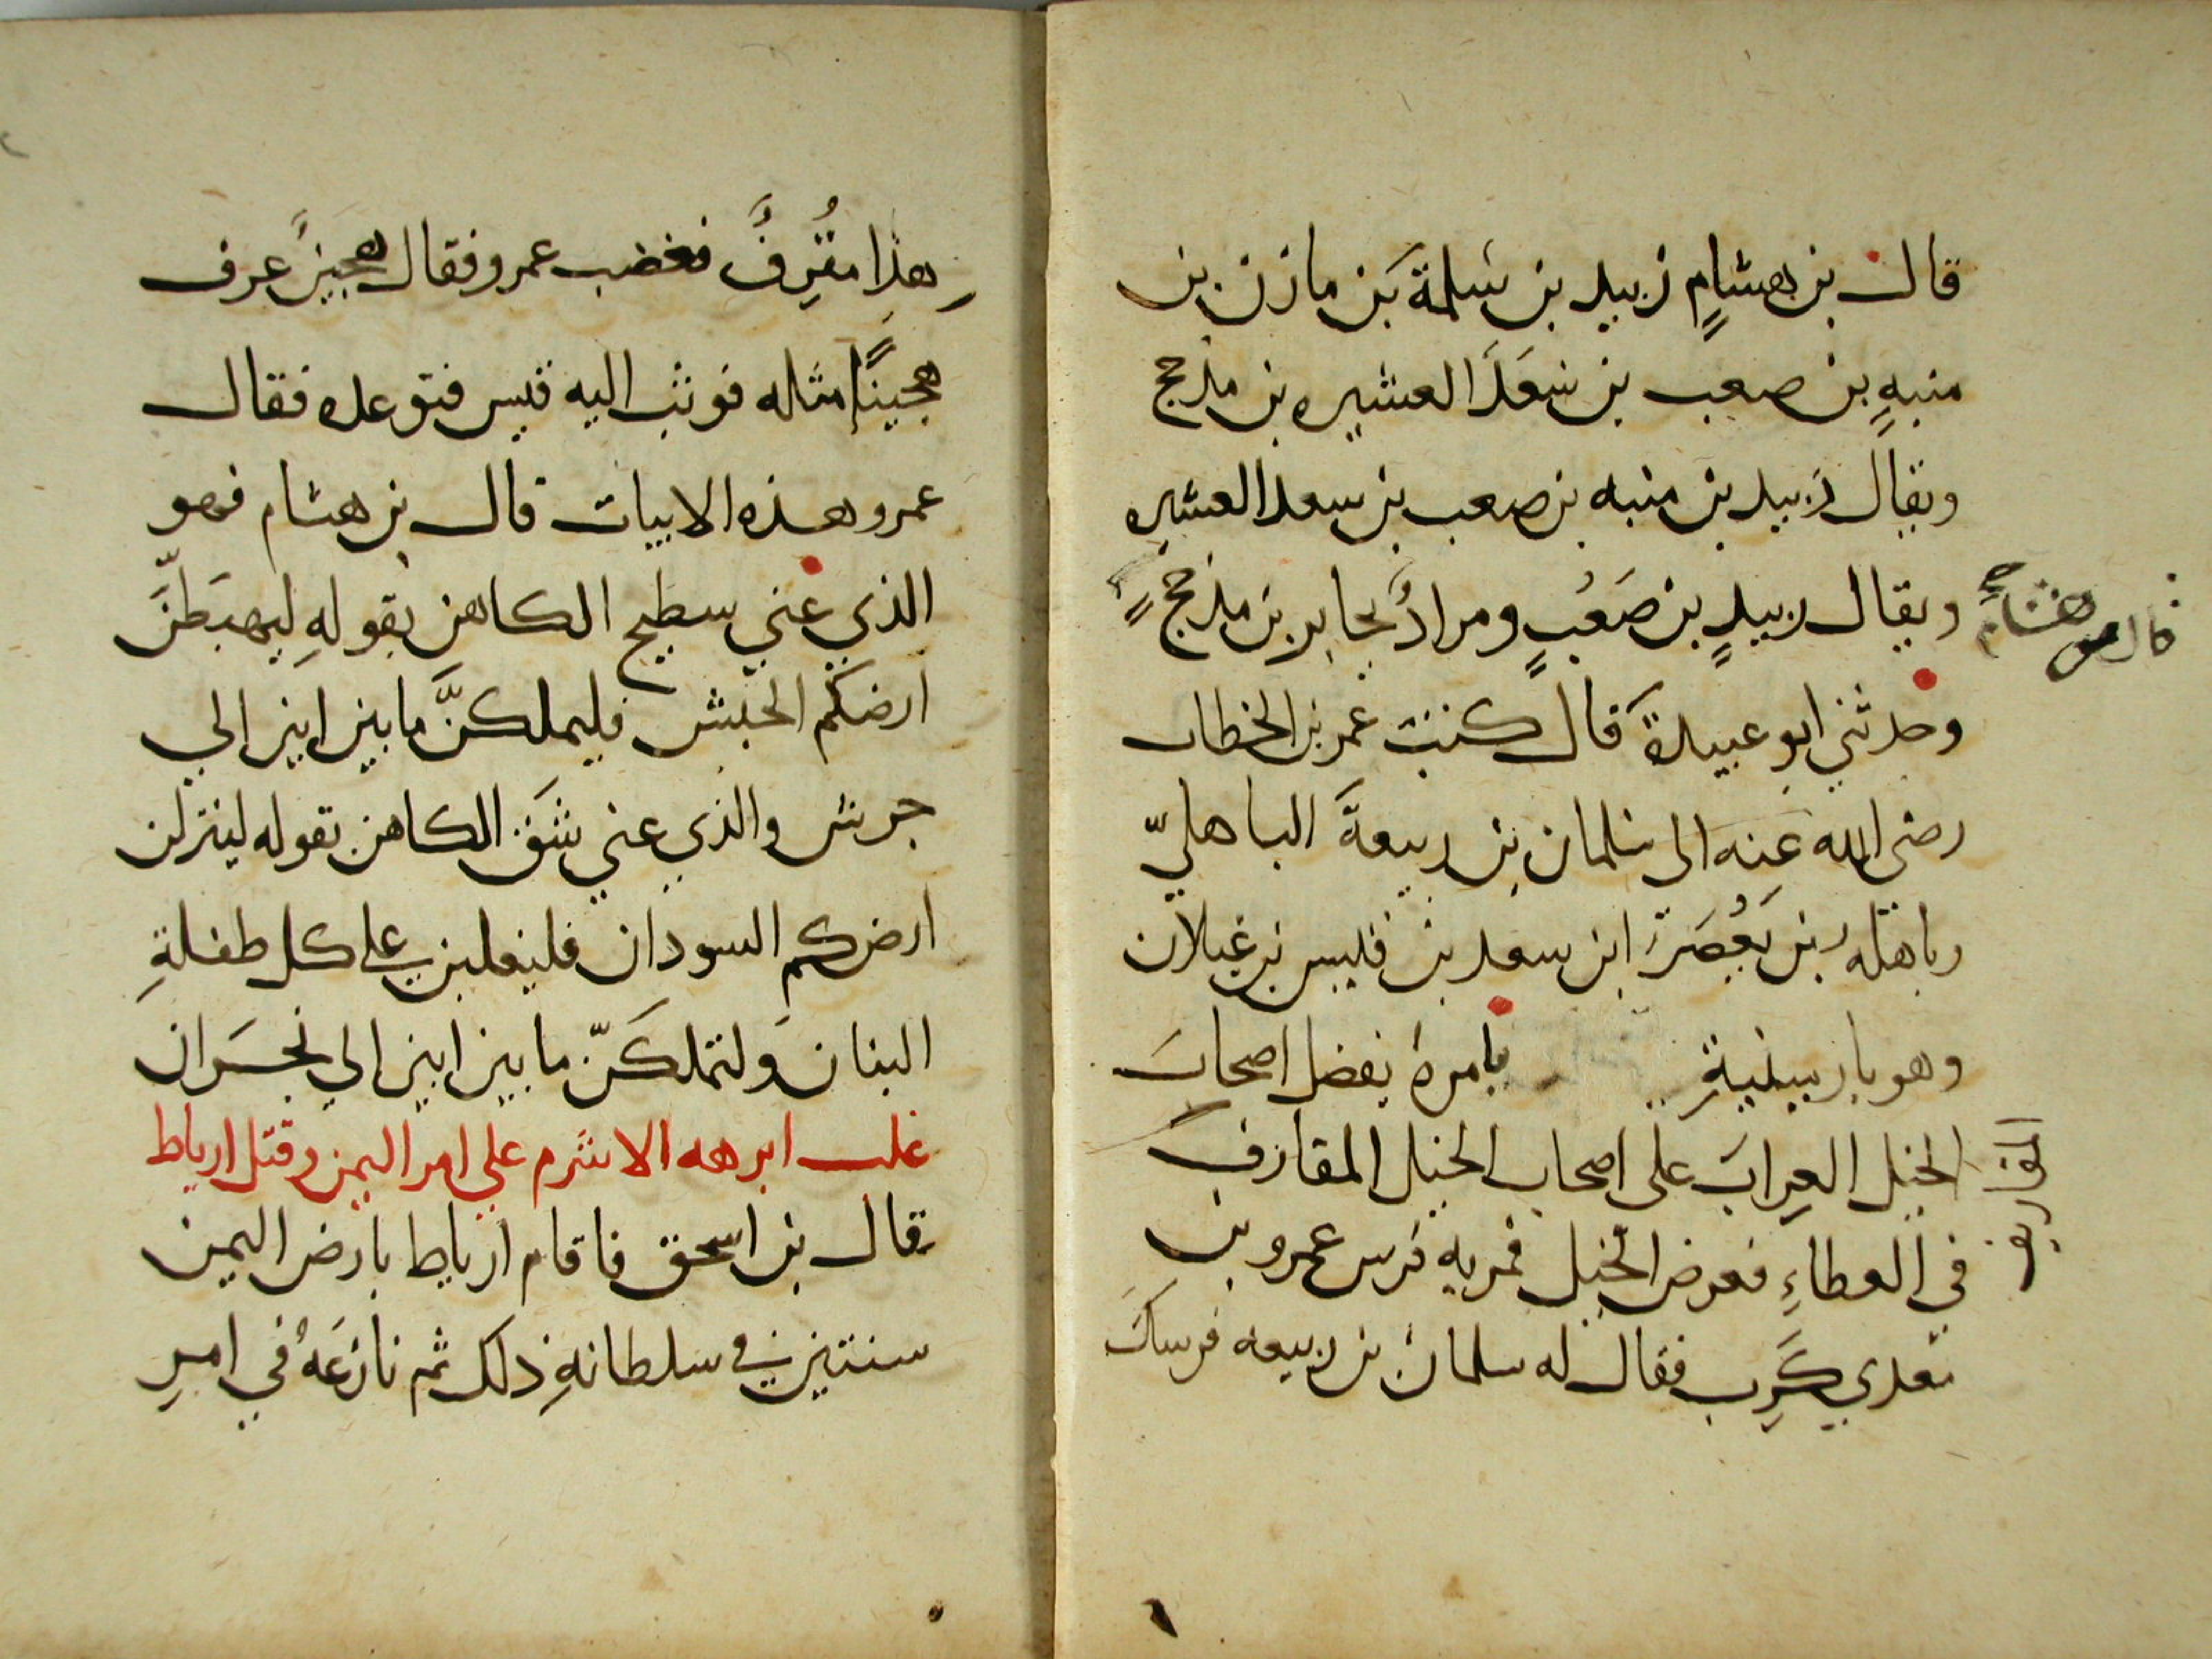 قال بن هشامٍ زبيد بن سلمة بن مازن بن
منبهِ بن صعب بن سَعَدَ العشيره بن مذحج
ويقال زبيد بن منبه بن صعب بن سعد العشيره
ويقال زبيدٍ بن صَعُبٍ ومرادُ يحابر بن مذحج
قال هشام
وحدثني ابو عبيدة قال كتبت عمر بن الخطاب
رضي الله عنه الى سلمان بن ربيعةَ الباهليّ
وباهله بن يَعُصَرَ ابن سعد بن قيس بن غيلان
وهو بارمينيةِ يامرهُ يفضل اصحابَ
الخيل العِرابَ على اصحاب الخيل المقارف
في العطاءِ فعرض الخيل فمر به فرس عمرو بن
معدي كَرِب فقال له سلمان بن ربيعه فرسكَ
هذا مقُرِفُ فغضب عمرو فقال هجينُ عرف
هجينًا مثله فوثب اليه قيس فتوعده فقال
عمرو هذه الابيات قال بن هشام فهو
الذي عني سطيح الكاهن بقولهِ ليهبَطنَّ
ارضكم الحبش فليملكنَّ ما بين ابين الي
جرش والذي عني شَق الكاهن بقوله لينزلن
ارضكم السودان فليغلبن على كل طفلةِ
البنان ولتملكَنّ ما بين ابين الي نجسَران
غلب ابرهه الاشرم علي امر اليمن وقتل ارياط
قال بن اسحق فاقام ارياط بارض اليمن
سنتين في سلطانهِ ذلك ثم نازَعَهُ في امرِ